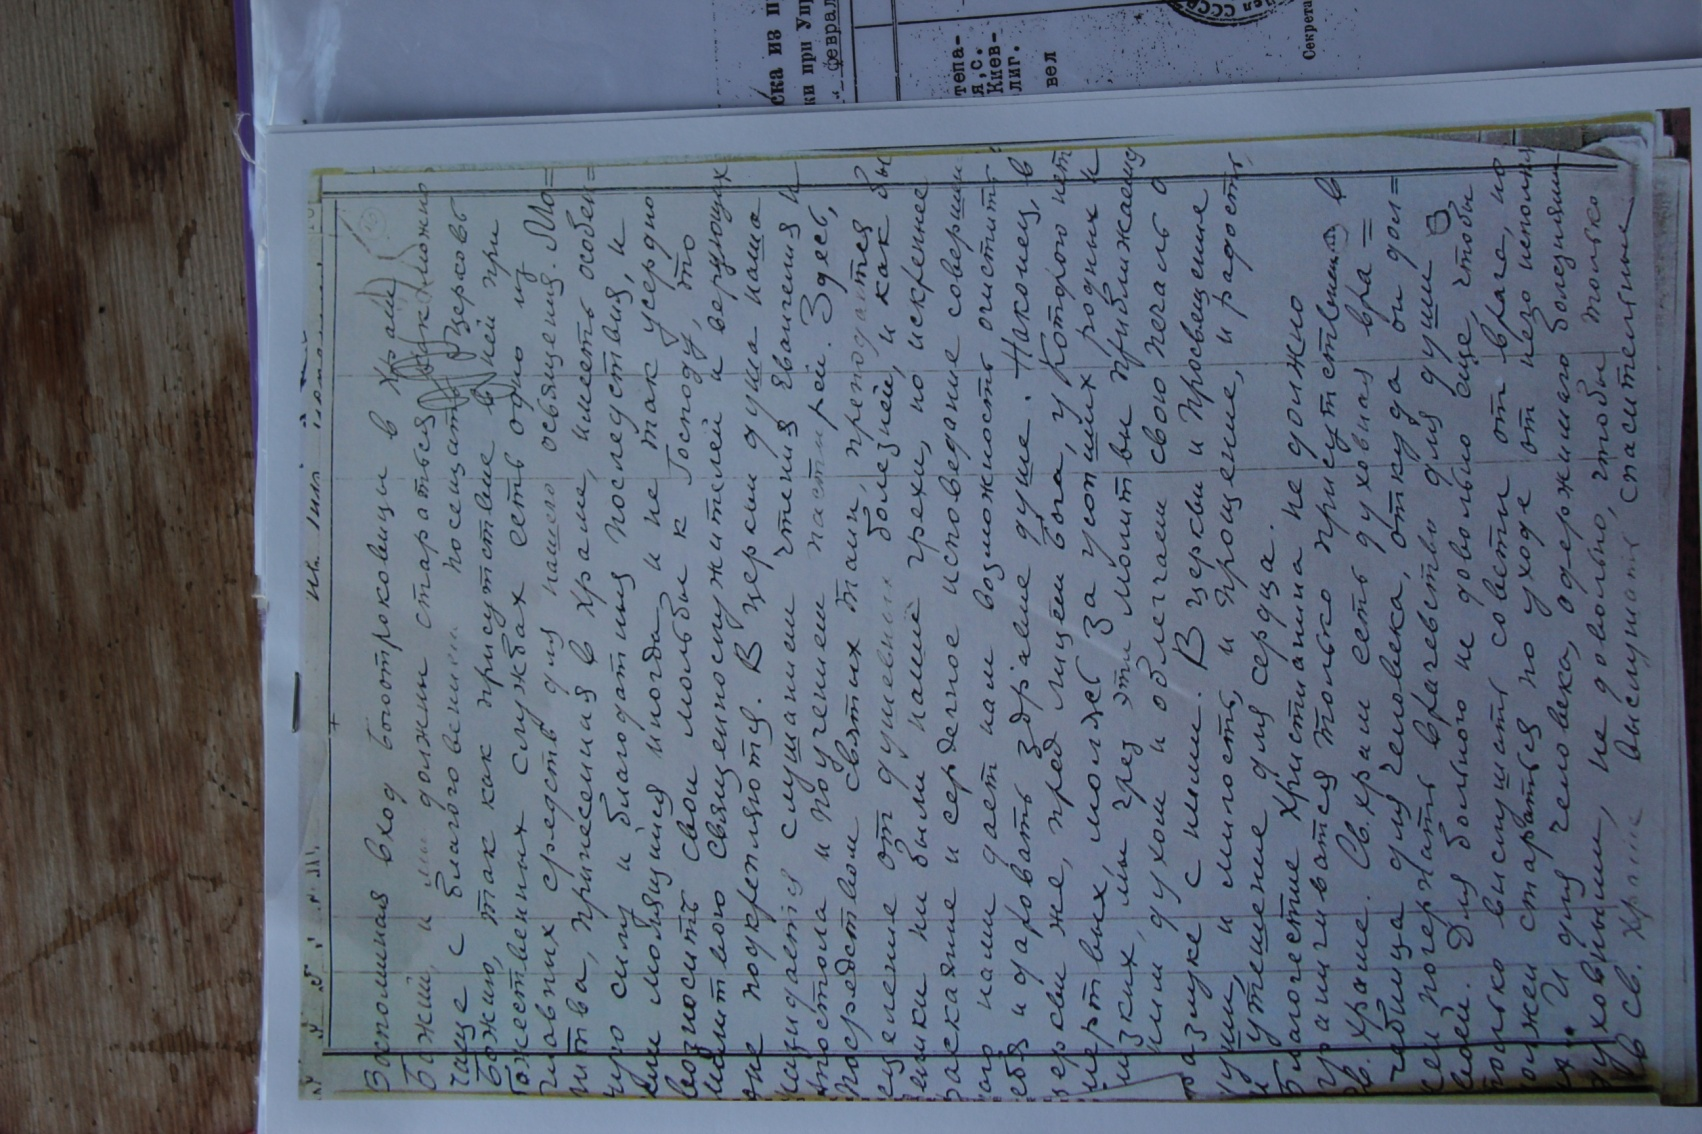 Воспоминая вход богоотроковицы в храм
Божий, и мы должны стараться как можно
чаще с благоговением посещать Церковь
Божию, так как присутствие в ней при
божественных службах есть одно из
главных средств для нашего освящения. Мо=
литва, принесенная в храме, имеет особен=
ную силу и благодатныя последствия, и
если молящийся иногда и не так усердно
возносит свои мольбы к Господу, то
молитвою священнослужителей и верующих
оне подкрепляются. В церкви душа наша
назидается слушанием чтения Евангелия и
Апостола и поучением пастырей. Здесь,
посредством святых таин, преподаится
исцеление от душевных болезней, и как бы
велики ни были наше грехи, но искреннее
раскаяние и сердечное исповедание соверши
нами дает нам возможность очистить
себя и даровать здравие душе. Наконец, в
церкви же, пред лицем Бога, у Которого нет
мертвых, молясь за усопших родных и
близких, мы чрез эти молитвы приближаемся
к ним духом и облегчаем свою печаль о
разлуке с ними. В церкви и просвещение
души, и милость, и прощение, и радость,
и утешение для сердца.
Благочестие христианина не должно
ограничиватся только присутствием в
св. храме. Св. храм есть духовная вра=
чебница для человека, откуда он дол=
жен почерпать врачевство для души
своей. Для больного не довольно еще, чтобы
только выслушать советы от врача, но
должен старатся по уходе от него исполня
их. И для человека, одержимаго болезнями
духовными, не довольно, чтобы только
в св. храме выслушать спасительные
ска из п
ки при Уп
феврал
тепа-
я, с.
Киев-
лиг.
вел
Секрета
дел СССР